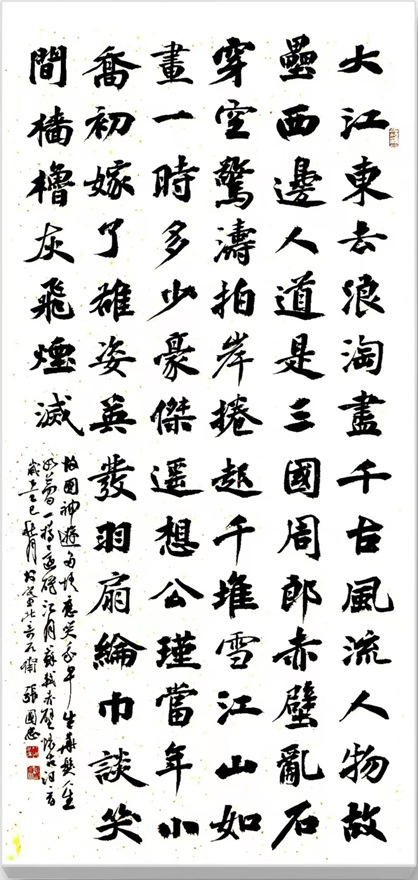 大江東去浪淘盡千古風流人物故
壘西邊人道是三國周郎赤壁亂石
穿空驚濤拍岸捲起千堆雪江山如
畫一時多少豪傑遥想公瑾當年小
喬初嫁了雄姿英發羽扇綸巾談笑
間檣櫓灰飛煙滅
故國神遊多情應笑我早生華髮人生
如夢一樽還酹江月蘇軾赤壁懷古詞
歲在乙巳秋月張國恩